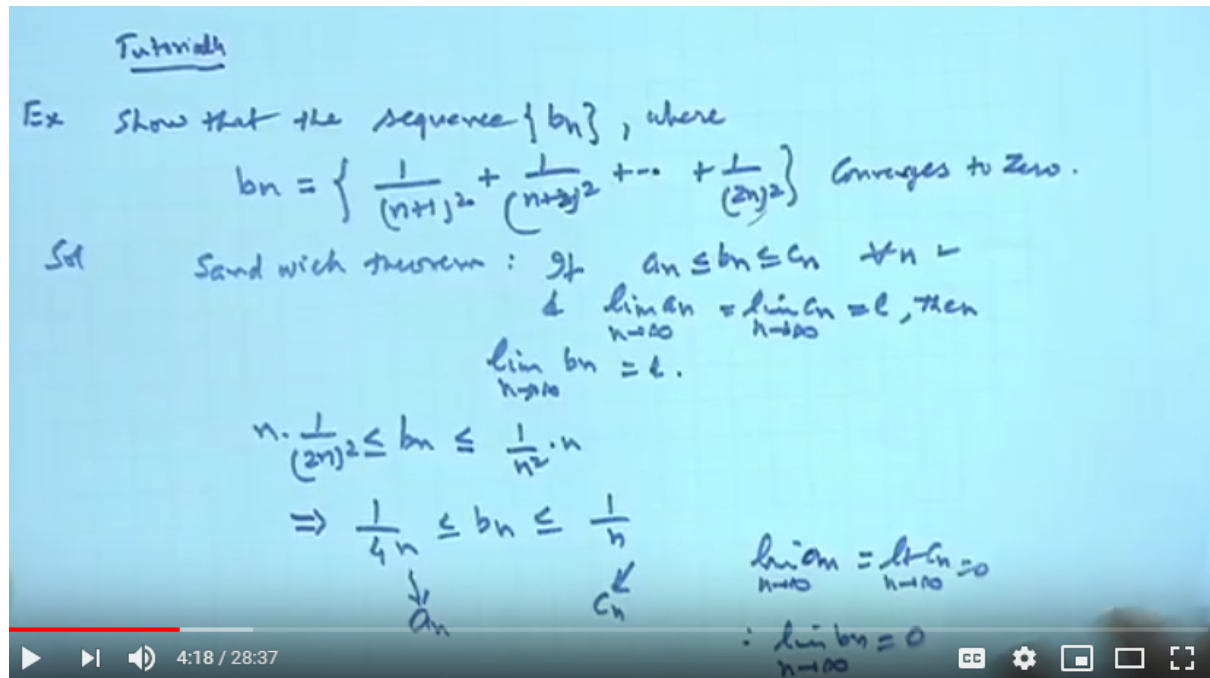 Tutorials
Ex Show that the sequence {bn}, where
bn = { 1/(n+1)² + 1/(n+2)² + --- + 1/(2n)² } Converges to Zero.
Sol Sandwich theorem : If an ≤ bn ≤ cn ∀n
& lim n→∞ an = lim n→∞ cn = l, then
lim n→∞ bn = l.
n. 1/(2n)² ≤ bn ≤ 1/n² . n
⇒ 1/4n ≤ bn ≤ 1/n
an cn
lim n→∞ an = lt n→∞ cn = 0
∴ lim n→∞ bn = 0
4:18 / 28:37 CC